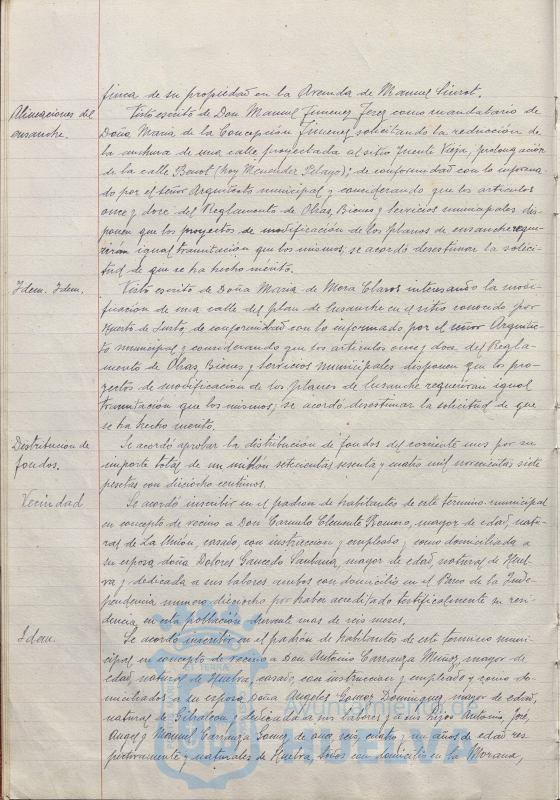 finca de su propiedad en la Avenida de Manuel Siurot.
Alineaciones del
ensanche.
Visto escrito de Don Manuel Jimenez Jerez como mandatario de
Doña Maria de la Concepción Jimenez solicitando la reduccion de
la anchura de una calle proyectada al sitio Fuente Vieja, prolongación
de la calle Benot (hoy Menendez Pelayo); de conformidad con lo informa-
do por el señor Arquitecto municipal y considerando que los articulos
once y doce del Reglamento de Obras, Bienes y Servicios municipales dis-
ponen que los proyectos de modificación de los planos de ensanche requi-
rirán igual tramitacion que los mismos; se acordó desestimar la solici-
tud de que se ha hecho mérito.
Idem. Idem.
Visto escrito de Doña Maria de Mora Claros interesando la modi-
ficacion de una calle del plan de Ensanche en el sitio conocido por
Huerto de; de conformidad con lo informado por el señor Arquitec-
to municipal y considerando que los articulos once y doce del Regla-
mento de Obras Bienes y Servicios municipales disponen que los pro-
yectos de modificación de los planes de Ensanche requerirán igual
tramitación que los mismos; se acordó desestimar la solicitud de que
se ha hecho merito.
Distribucion de
fondos.
Se acordó aprobar la distribución de fondos del corriente mes por su
importe total de un millón setecientas sesenta y cuatro mil novecientas siete
pesetas con dieciocho centimos.
Vecindad
Se acordó inscribir en el padron de habitantes de este termino municipal
en concepto de vecino a Don Carmelo Clemente Romero, mayor de edad, natu-
ral de La Unión, casado, con instruccion y empleado y como domiciliada a
su esposa doña Dolores Saucedo Santana, mayor de edad, natural de Huel-
va y dedicada a sus labores ambos con domicilio en el Paseo de la Inde-
pendencia numero dieciocho por haber acreditado testificalmente su resi-
dencia en esta población durante mas de seis meses.
Idem.
Se acordó inscribir en el padrón de habitantes de este termino muni-
cipal en concepto de vecino a Don Antonio Carranza Muñoz, mayor de
edad, natural de Huelva, casado, con instruccion y empleado y como do-
miciliados a su esposa Doña Angeles Gomez Dominguez mayor de edad,
natural de Gibraleon y dedicada a sus labores y a sus hijos Antonio, José,
Angel y Manuel Carranza Gomez de once, seis, cuatro y un años de edad res-
pectivamente y naturales de Huelva, todos con domicilio en la Morana,
Ayuntamiento de
HUELVA